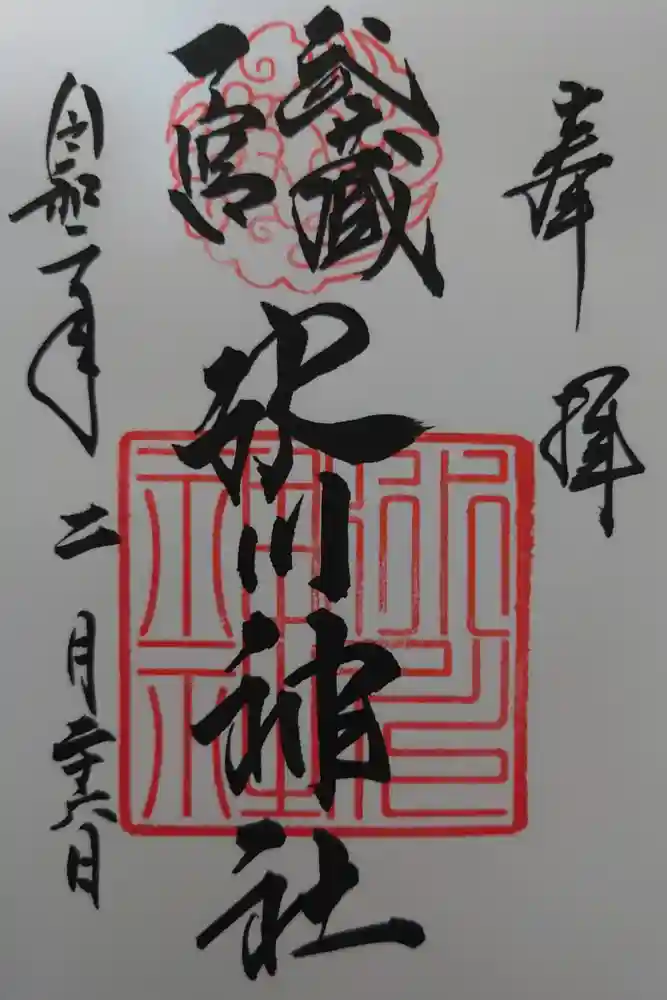 奉拝
武蔵
一宮
氷川神社
令和二年二月二十六日